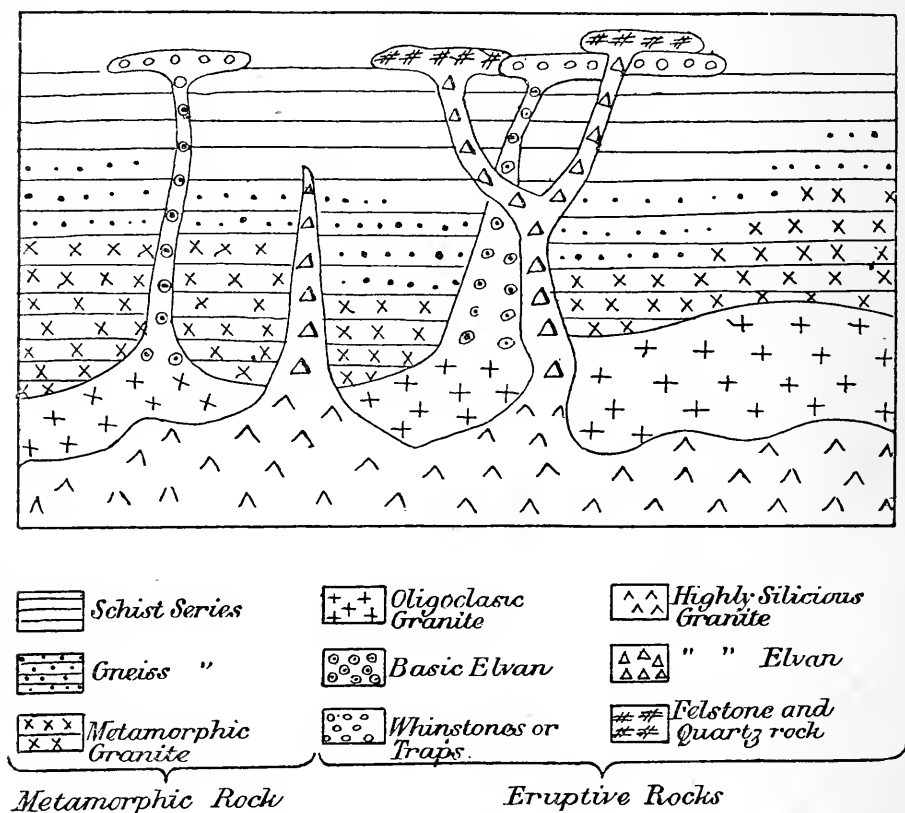 Schist Series
Gneiss "
Metamorphic
Granite
Metamorphic Rock
Oligoclasic
Granite
Basic Elvan
Whinstones or
Traps.
Highly Silicious
Granite
" " Elvan
Felstone and
Quartz rock
Eruptive Rocks